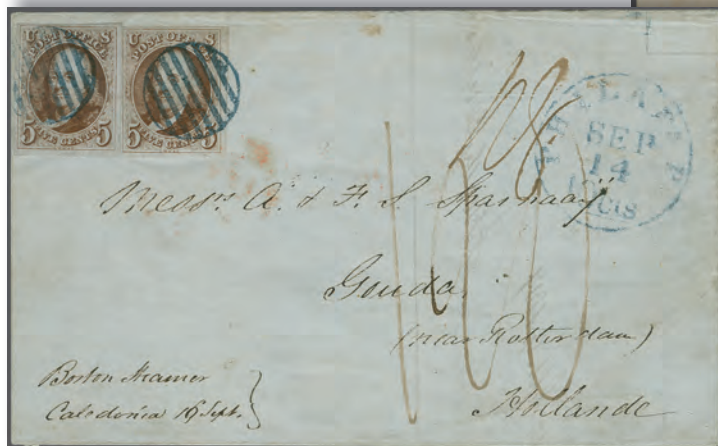 U S U S
POST OFFICE POST OFFICE
5 FIVE CENTS 5 5 FIVE CENTS 5
PHILADA Pa
SEP
14
10 cts
Messrs A. & F. S. Sparnaay
Gouda.
(near Rotterdam)
Hollande
Boston Steamer
Caledonia 16 Sept.